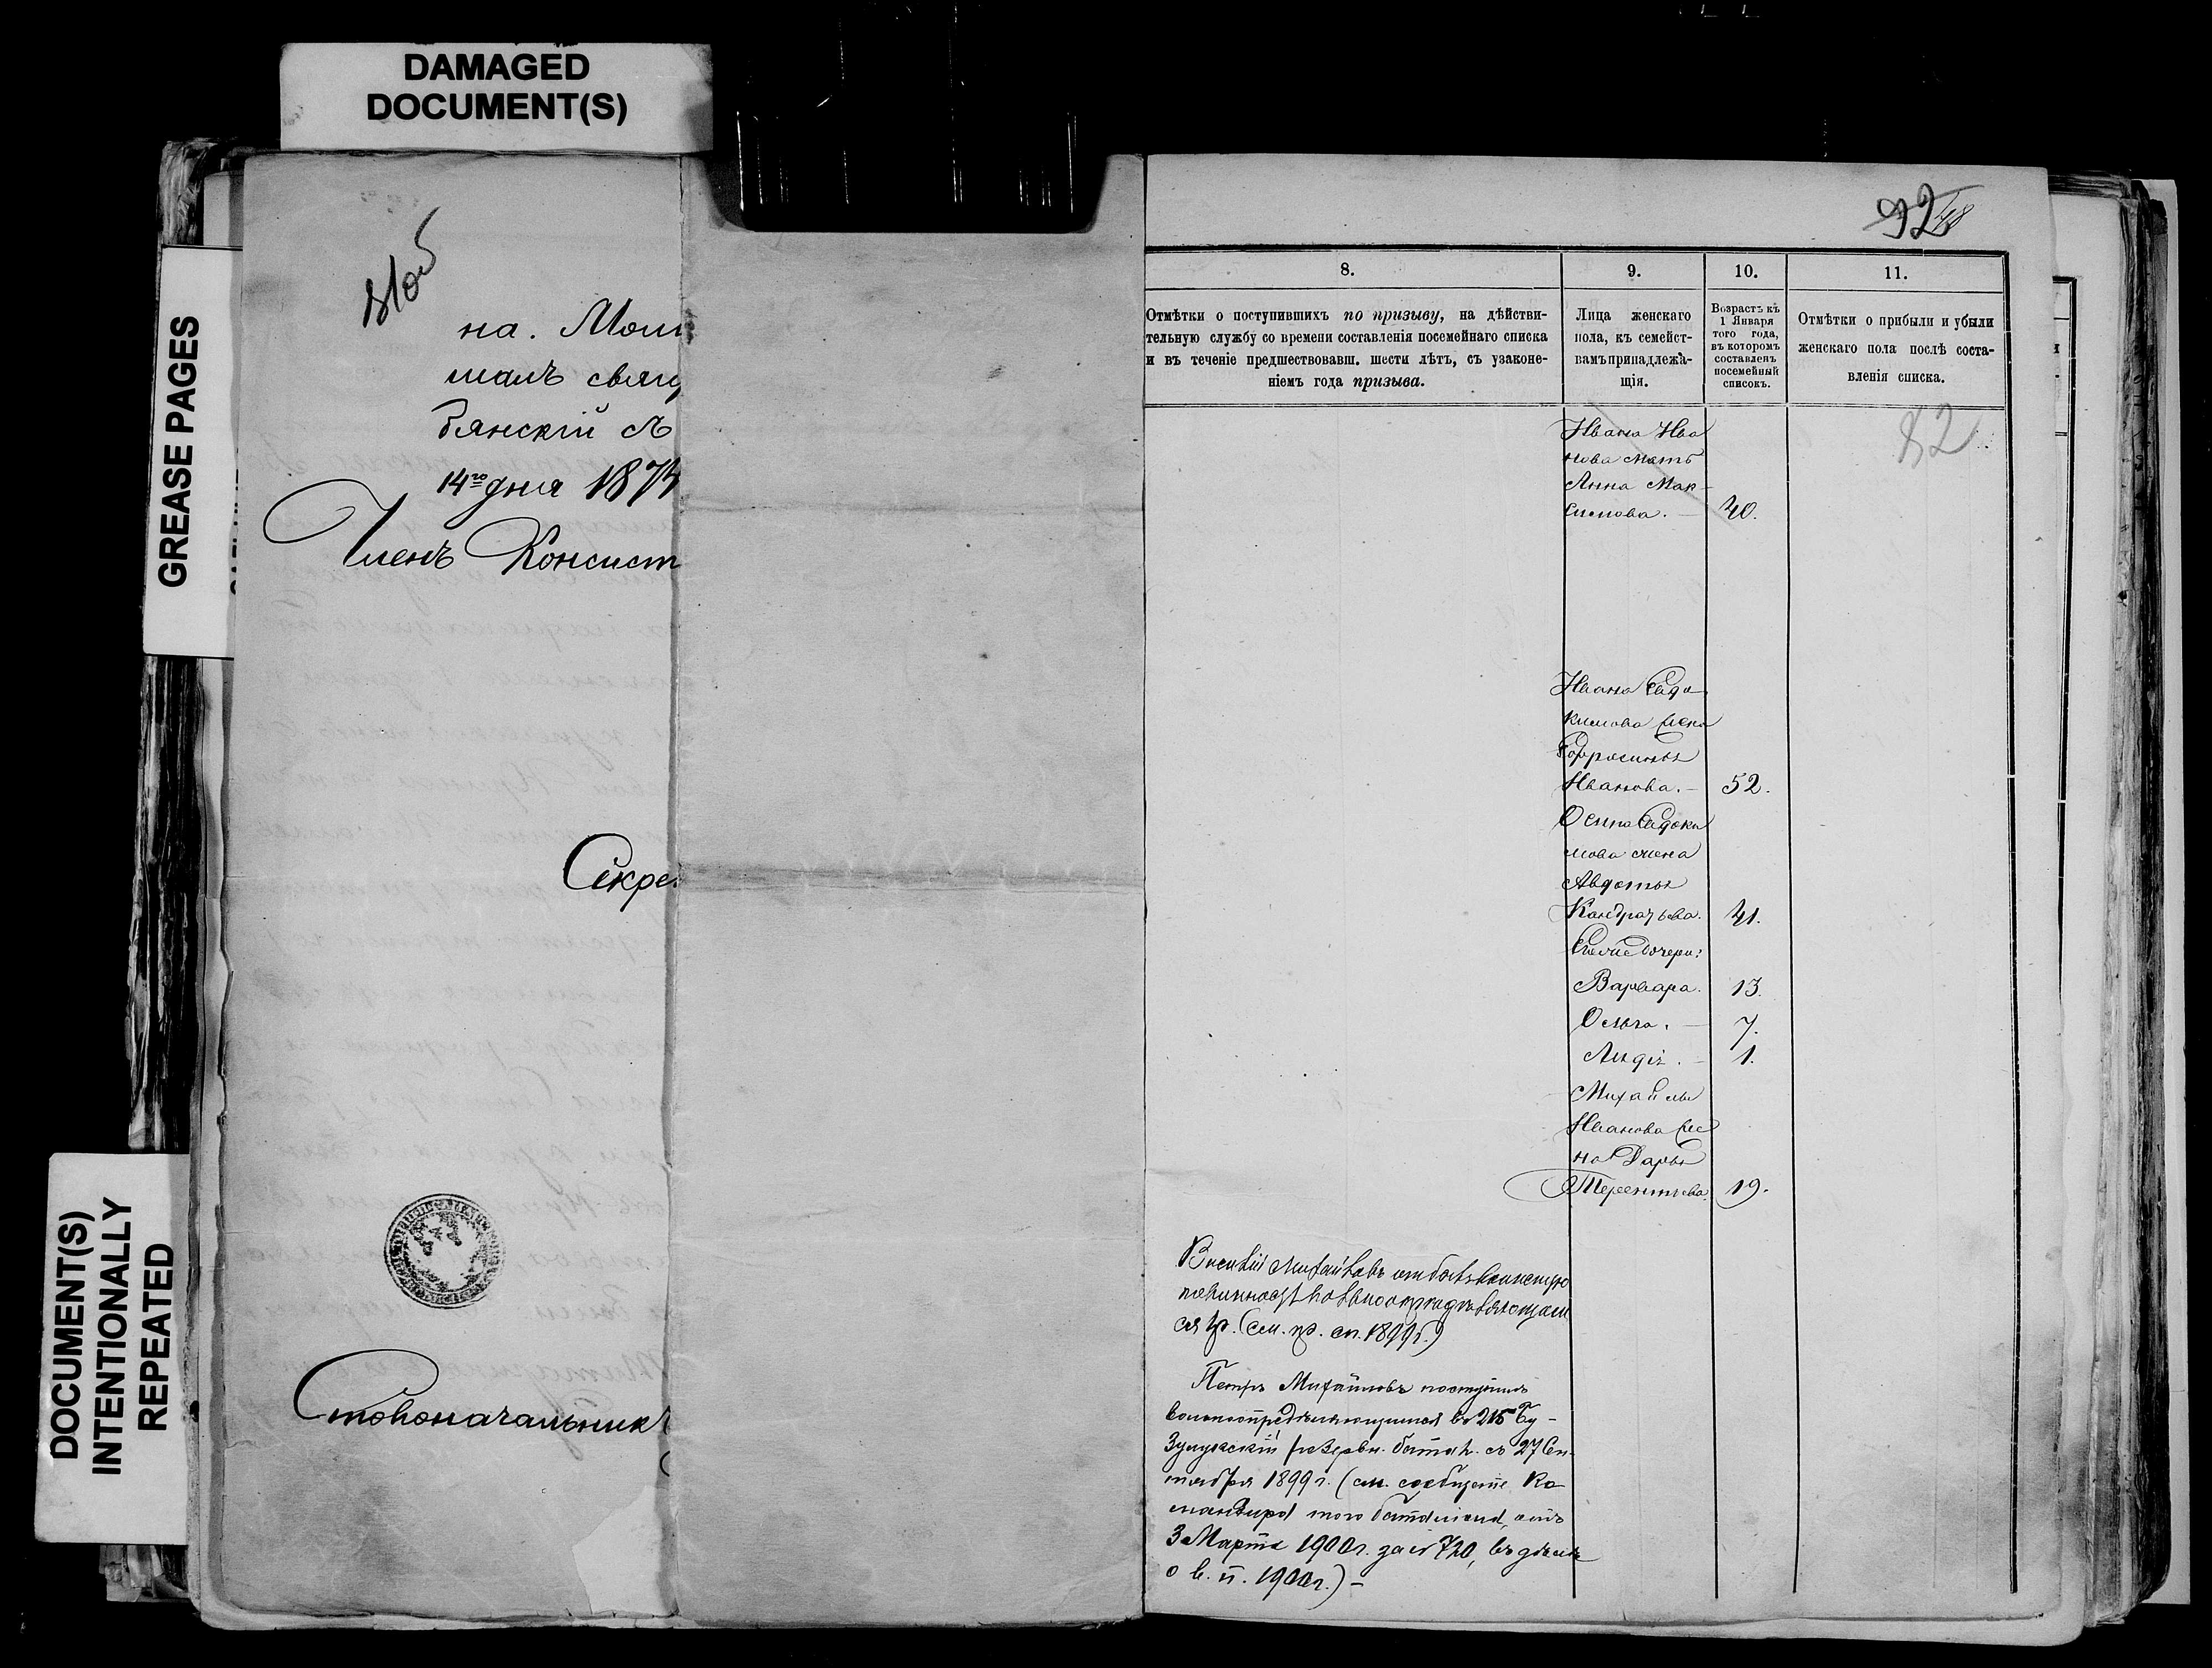 DAMAGED
DOCUMENT(S)
GREASE PAGES
DOCUMENT(S)
INTENTIONALLY
REPEATED
на.
шалъ свящ
бянскій
14го дня 187
Членъ Консист
Секре
Столоначальникъ
92
8.
Отмѣтки о поступившихъ по призыву, на дѣйстви-
тельную службу со времени составленія посемейнаго списка
и въ теченіе предшествовавш. шести лѣтъ, съ узаконе-
ніемъ года призыва.
9.
Лица женскаго
пола, къ семейст-
вамъ принадлежа-
щія.
10.
Возрастъ къ
1 Января
того года,
въ которомъ
составленъ
посемейный
списокъ.
11.
Отмѣтки о прибыли и убыли
женскаго пола послѣ соста-
вленія списка.
82
Ивана Ива
нова мать
Анна Мак-
симова. — 40.
Ивана Евдо
кимова жена
Ефросинья
Иванова. — 52.
Осипа Евдоки
мова жена
Авдотья
Кондратьева. 41.
Ихъ дочери:
Варвара. 13.
Ольга. — 7.
Лидія. — 1.
Михайлы
Иванова же
на Дарья
Терентьева. 19.
Василій Михайловъ отбылъ воинскую
повинность вольноопредѣляющим
ся (см. пр. сп. 1899 г.)
Петръ Михайловъ поступилъ
вольноопредѣляющимся въ 215 Бу-
зулукскій резервн. батал. съ 27 Сен-
тября 1899 г. (см. сообщеніе Ко
мандира того баталіона, отъ
3 Марта 1900 г. за № 720, въ дѣлѣ
о в. п. 1900 г.) —